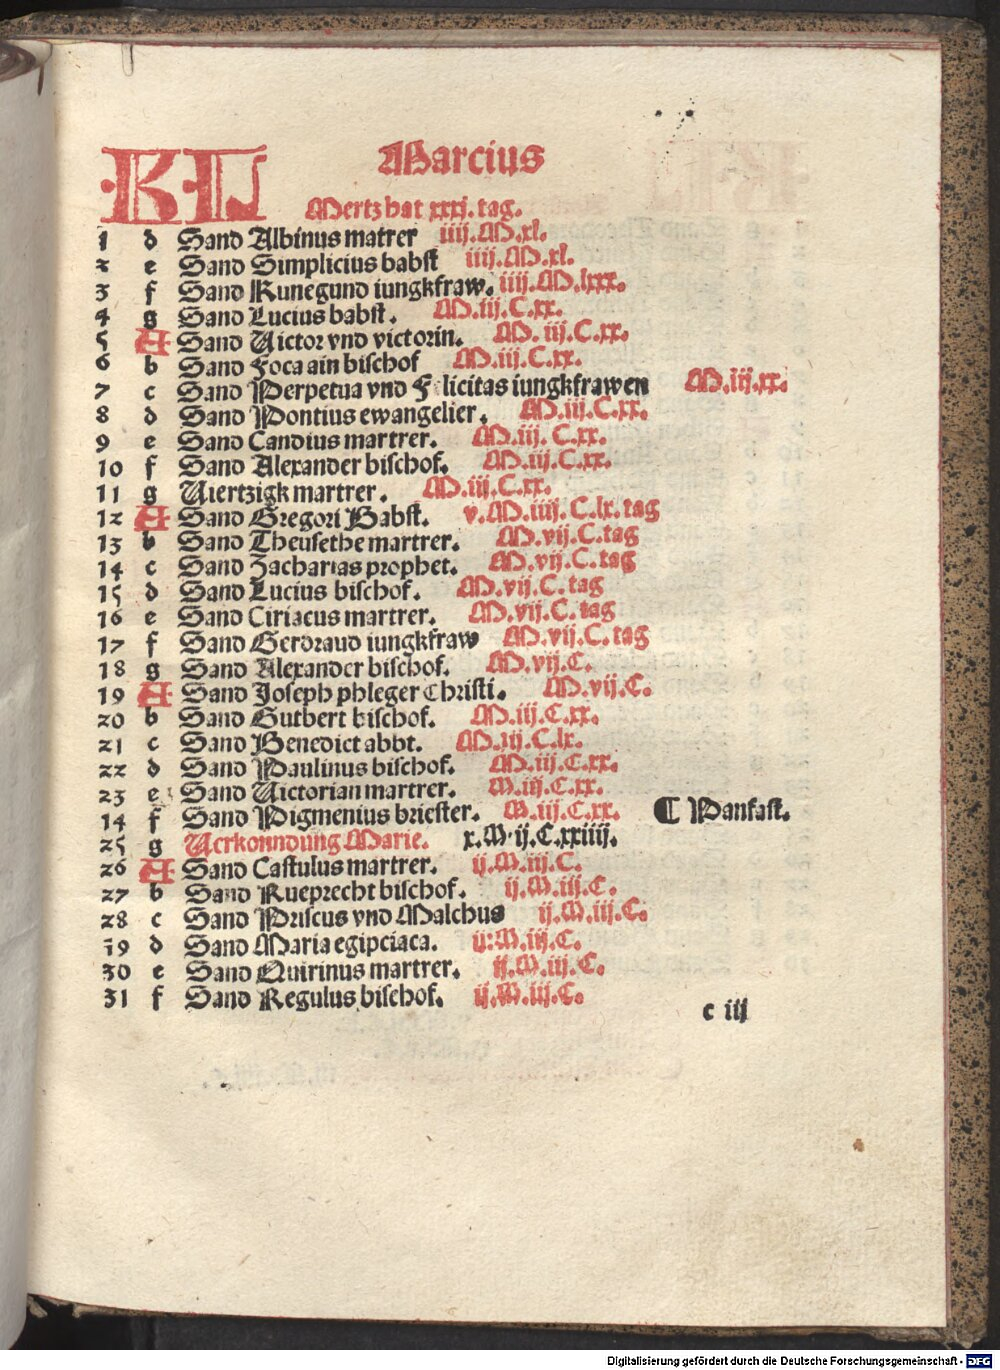 KL Marcius
Mertz hat xxxj. tag.
1 d Sand Albinus matrer iiij.M.xl.
2 e Sand Simplicius babst iiij.M.xl.
3 f Sand Kunegund iungkfraw. iiij.M.lxxx.
4 g Sand Lucius babst. M.iij.C.xx.
5 A Sand Uictor vnd victorin. M.iij.C.xx.
6 b Sand Foca ain bischof M.iij.C.xx.
7 c Sand Perpetua vnd F licitas iungkfrawen M.iij.xx.
8 d Sand Pontius ewangelier. M.iij.C.xx.
9 e Sand Candius martrer. M.iij.C.xx.
10 f Sand Alexander bischof. M.iij.C.xx.
11 g Uiertzigk martrer. M.iij.C.xx.
12 A Sand Gregori Babst. v.M.iiij.C.lx.tag
13 b Sand Theusethe martrer. M.vij.C.tag
14 c Sand Zacharias prophet. M.vij.C.tag
15 d Sand Lucius bischof. M.vij.C.tag
16 e Sand Ciriacus martrer. M.vij.C.tag
17 f Sand Gerdraud iungkfraw M.vij.C.tag
18 g Sand Alexander bischof. M.vij.C.
19 A Sand Joseph phleger Christi. M.vij.C.
20 b Sand Gutbert bischof. M.iij.C.xx.
21 c Sand Benedict abbt. M.iij.C.lx.
22 d Sand Paulinus bischof. M.iij.C.xx.
23 e Sand Uictorian martrer. M.iij.C.xx.
14 f Sand Pigmenius briester. M.iij.C.xx. ¶ Panfast.
25 g Uerkonndung Marie. x.M.ij.C.xxiiij.
26 A Sand Castulus martrer. ij.M.iij.C.
27 b Sand Rueprecht bischof. ij.M.iij.C.
28 c Sand Priscus vnd Malchus ij.M.iij.C.
19 d Sand Maria egipciaca. ij:M.iij.C.
30 e Sand Quirinus martrer. ij.M.iij.C.
31 f Sand Regulus bischof. ij.M.iij.C.
c iij
Digitalisierung gefördert durch die Deutsche Forschungsgemeinschaft - DFG